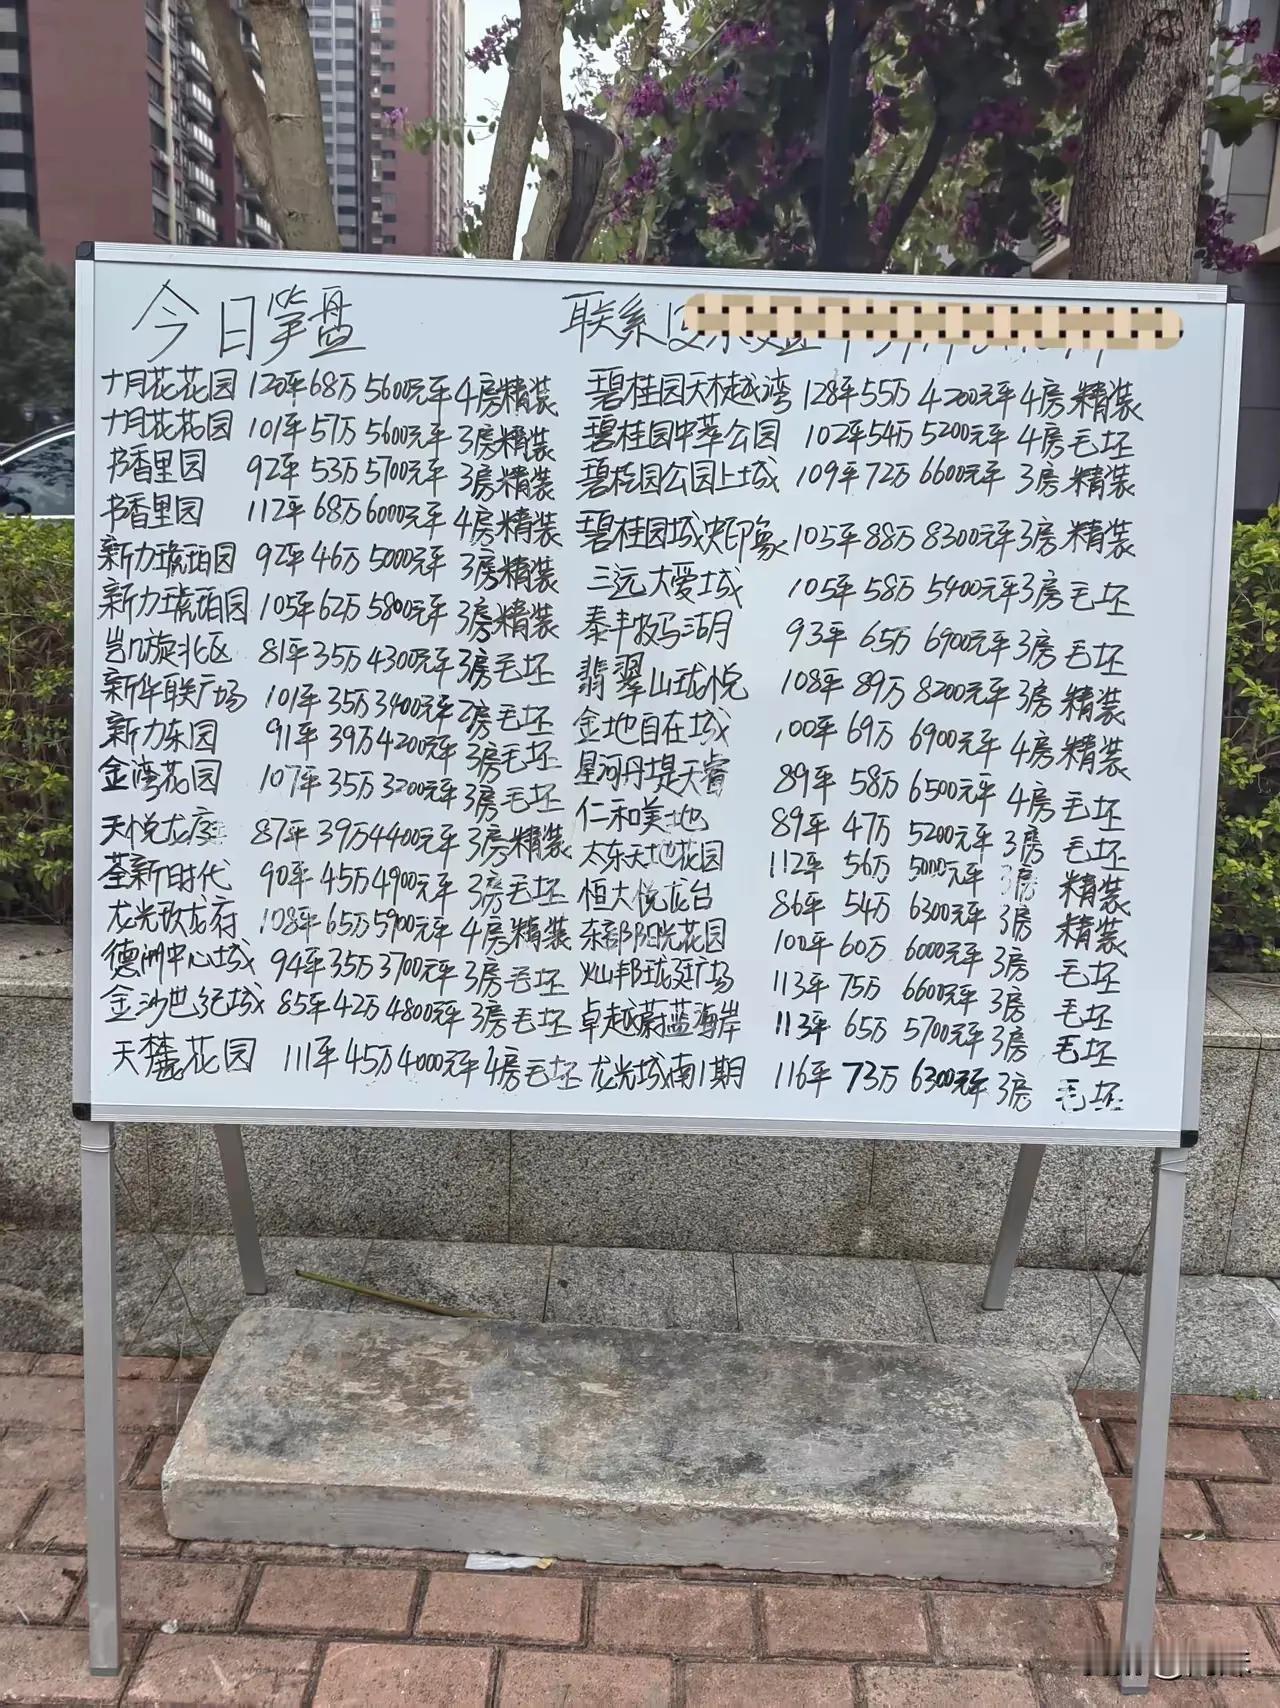 今日笋盘
联系
十月花花园 120平 68万 5600元平 4房精装
十月花花园 101平 57万 5600元平 3房精装
书香里园 92平 53万 5700元平 3房精装
书香里园 112平 68万 6000元平 4房精装
新力琥珀园 92平 46万 5000元平 3房精装
新力琥珀园 105平 62万 5800元平 3房精装
凯旋北区 81平 35万 4300元平 3房毛坯
新华联广场 101平 35万 3400元平 房毛坯
新力东园 91平 39万 4200元平 3房毛坯
金湾花园 107平 35万 3200元平 3房毛坯
天悦龙庭 87平 39万 4400元平 3房精装
荃新时代 90平 45万 4900元平 3房毛坯
龙光玖龙府 108平 65万 5900元平 4房精装
德洲中心城 94平 35万 3700元平 3房毛坯
金沙世纪城 85平 42万 4800元平 3房毛坯
天麓花园 111平 45万 4000元平 4房毛坯
碧桂园天樾湾 128平 55万 4200元平 4房精装
碧桂园中萃公园 102平 54万 5200元平 4房毛坯
碧桂园公园上城 109平 72万 6600元平 3房精装
碧桂园城央印象 105平 88万 8300元平 3房精装
三远大爱城 105平 58万 5400元平 3房毛坯
泰丰牧马湖 93平 65万 6900元平 3房毛坯
翡翠山珑悦 108平 89万 8200元平 3房精装
金地自在城 100平 69万 6900元平 4房精装
星河丹堤天睿 89平 58万 6500元平 4房毛坯
仁和美地 89平 47万 5200元平 3房毛坯
太东天地花园 112平 56万 5000元平 3房精装
恒大悦龙台 86平 54万 6300元平 3房精装
东部阳光花园 100平 60万 6000元平 3房毛坯
灿邦珑廷广场 113平 75万 6600元平 3房毛坯
卓越蔚蓝海岸 113平 65万 5700元平 3房毛坯
龙光城南1期 116平 73万 6300元平 3房毛坯